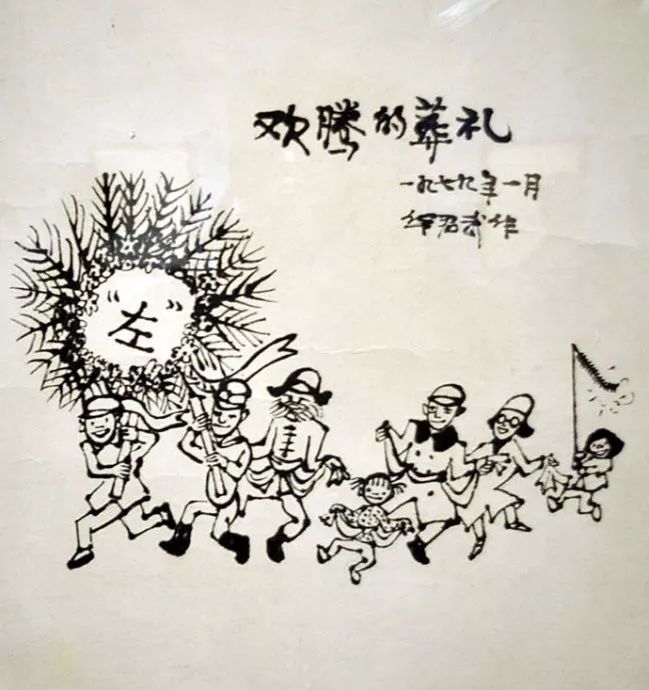 欢腾的葬礼
一九七九年一月
华君武作
“左”